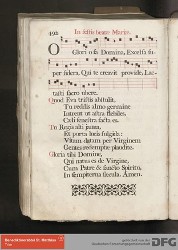 192 In festis beatæ Mariæ.
O Gloriosa Domina, Excelsa su-
per sidera, Qui te creavit provide, Lac-
tasti sacro ubere.
Quod Eva tristis abstulit,
Tu reddis almo germine
Intrent ut astra flebiles,
Cæli fenestra facta es.
Tu Regis alti janua,
Et porta lucis fulgida:
Vitam datam per Virginem
Gentes redemptæ plaudite.
Gloria tibi Domine,
Qui natus es de Virgine,
Cum Patre & sancto Spiritu,
In sempiterna sæcula. Amen.
Benediktinerabtei St. Matthias
Trier
DFG